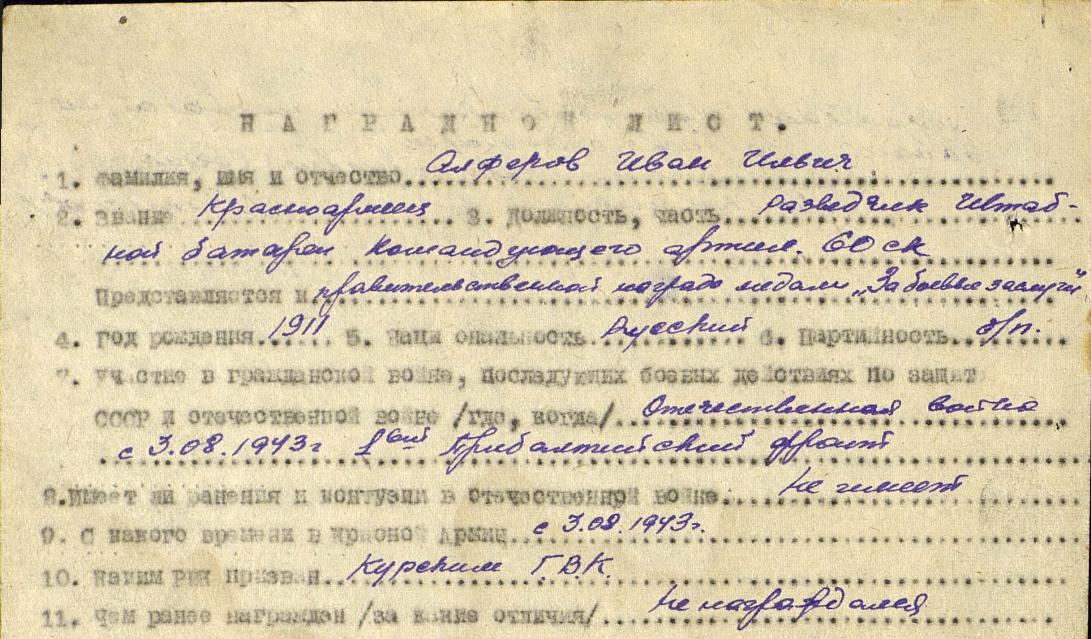 НАГРАДНОЙ ЛИСТ.
1. Фамилия, имя и отчество Алферов Иван Ильич
2. Звание Красноармеец 3. Должность, часть разведчик Штаб-
ной батареи Командующего артил. 60 ск
Представляется к правительственной награде медали „За боевые заслуги"
4. Год рождения 1911 5. Национальность Русский 6. Партийность б/п.
7. Участие в гражданской войне, последующих боевых действиях по защите
СССР и отечественной войне /где, когда/ Отечественная война
с 3.08.1943г 1вый Прибалтийский фронт
8. Имеет ли ранения и контузии в отечественной войне Не имеет
9. С какого времени в Красной Армии с 3.08.1943г.
10. Каким РВК призван Курским Г.В.К.
11. Чем ранее награжден /за какие отличия/ Не награждался